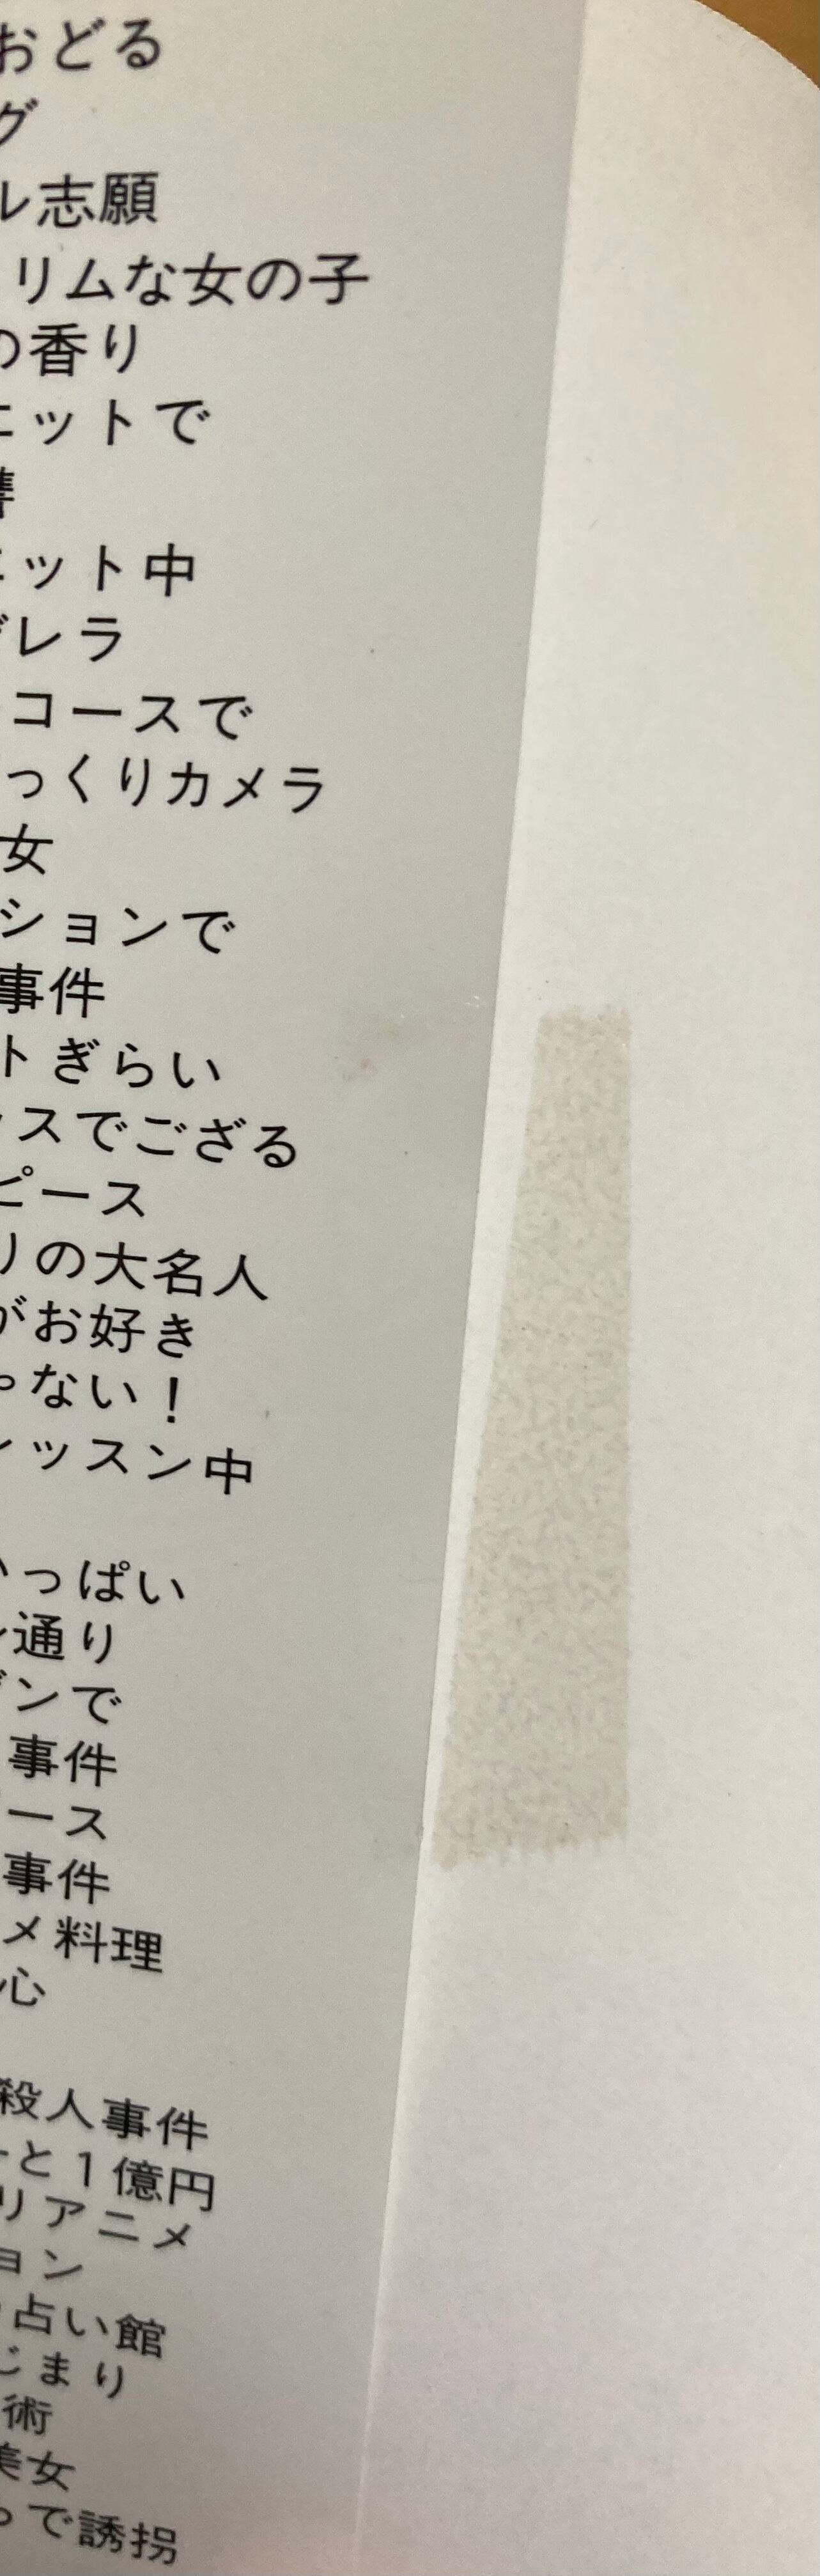 おどる
グ
ル志願
リムな女の子
の香り
エットで
エット中
デレラ
コースで
っくりカメラ
女
ションで
事件
トぎらい
ッスでござる
ピース
りの大名人
がお好き
ゃない！
レッスン中
いっぱい
通り
デンで
事件
ース
事件
メ料理
心
殺人事件
ーと1億円
リアニメ
ョン
占い館
じまり
術
美女
っで誘拐